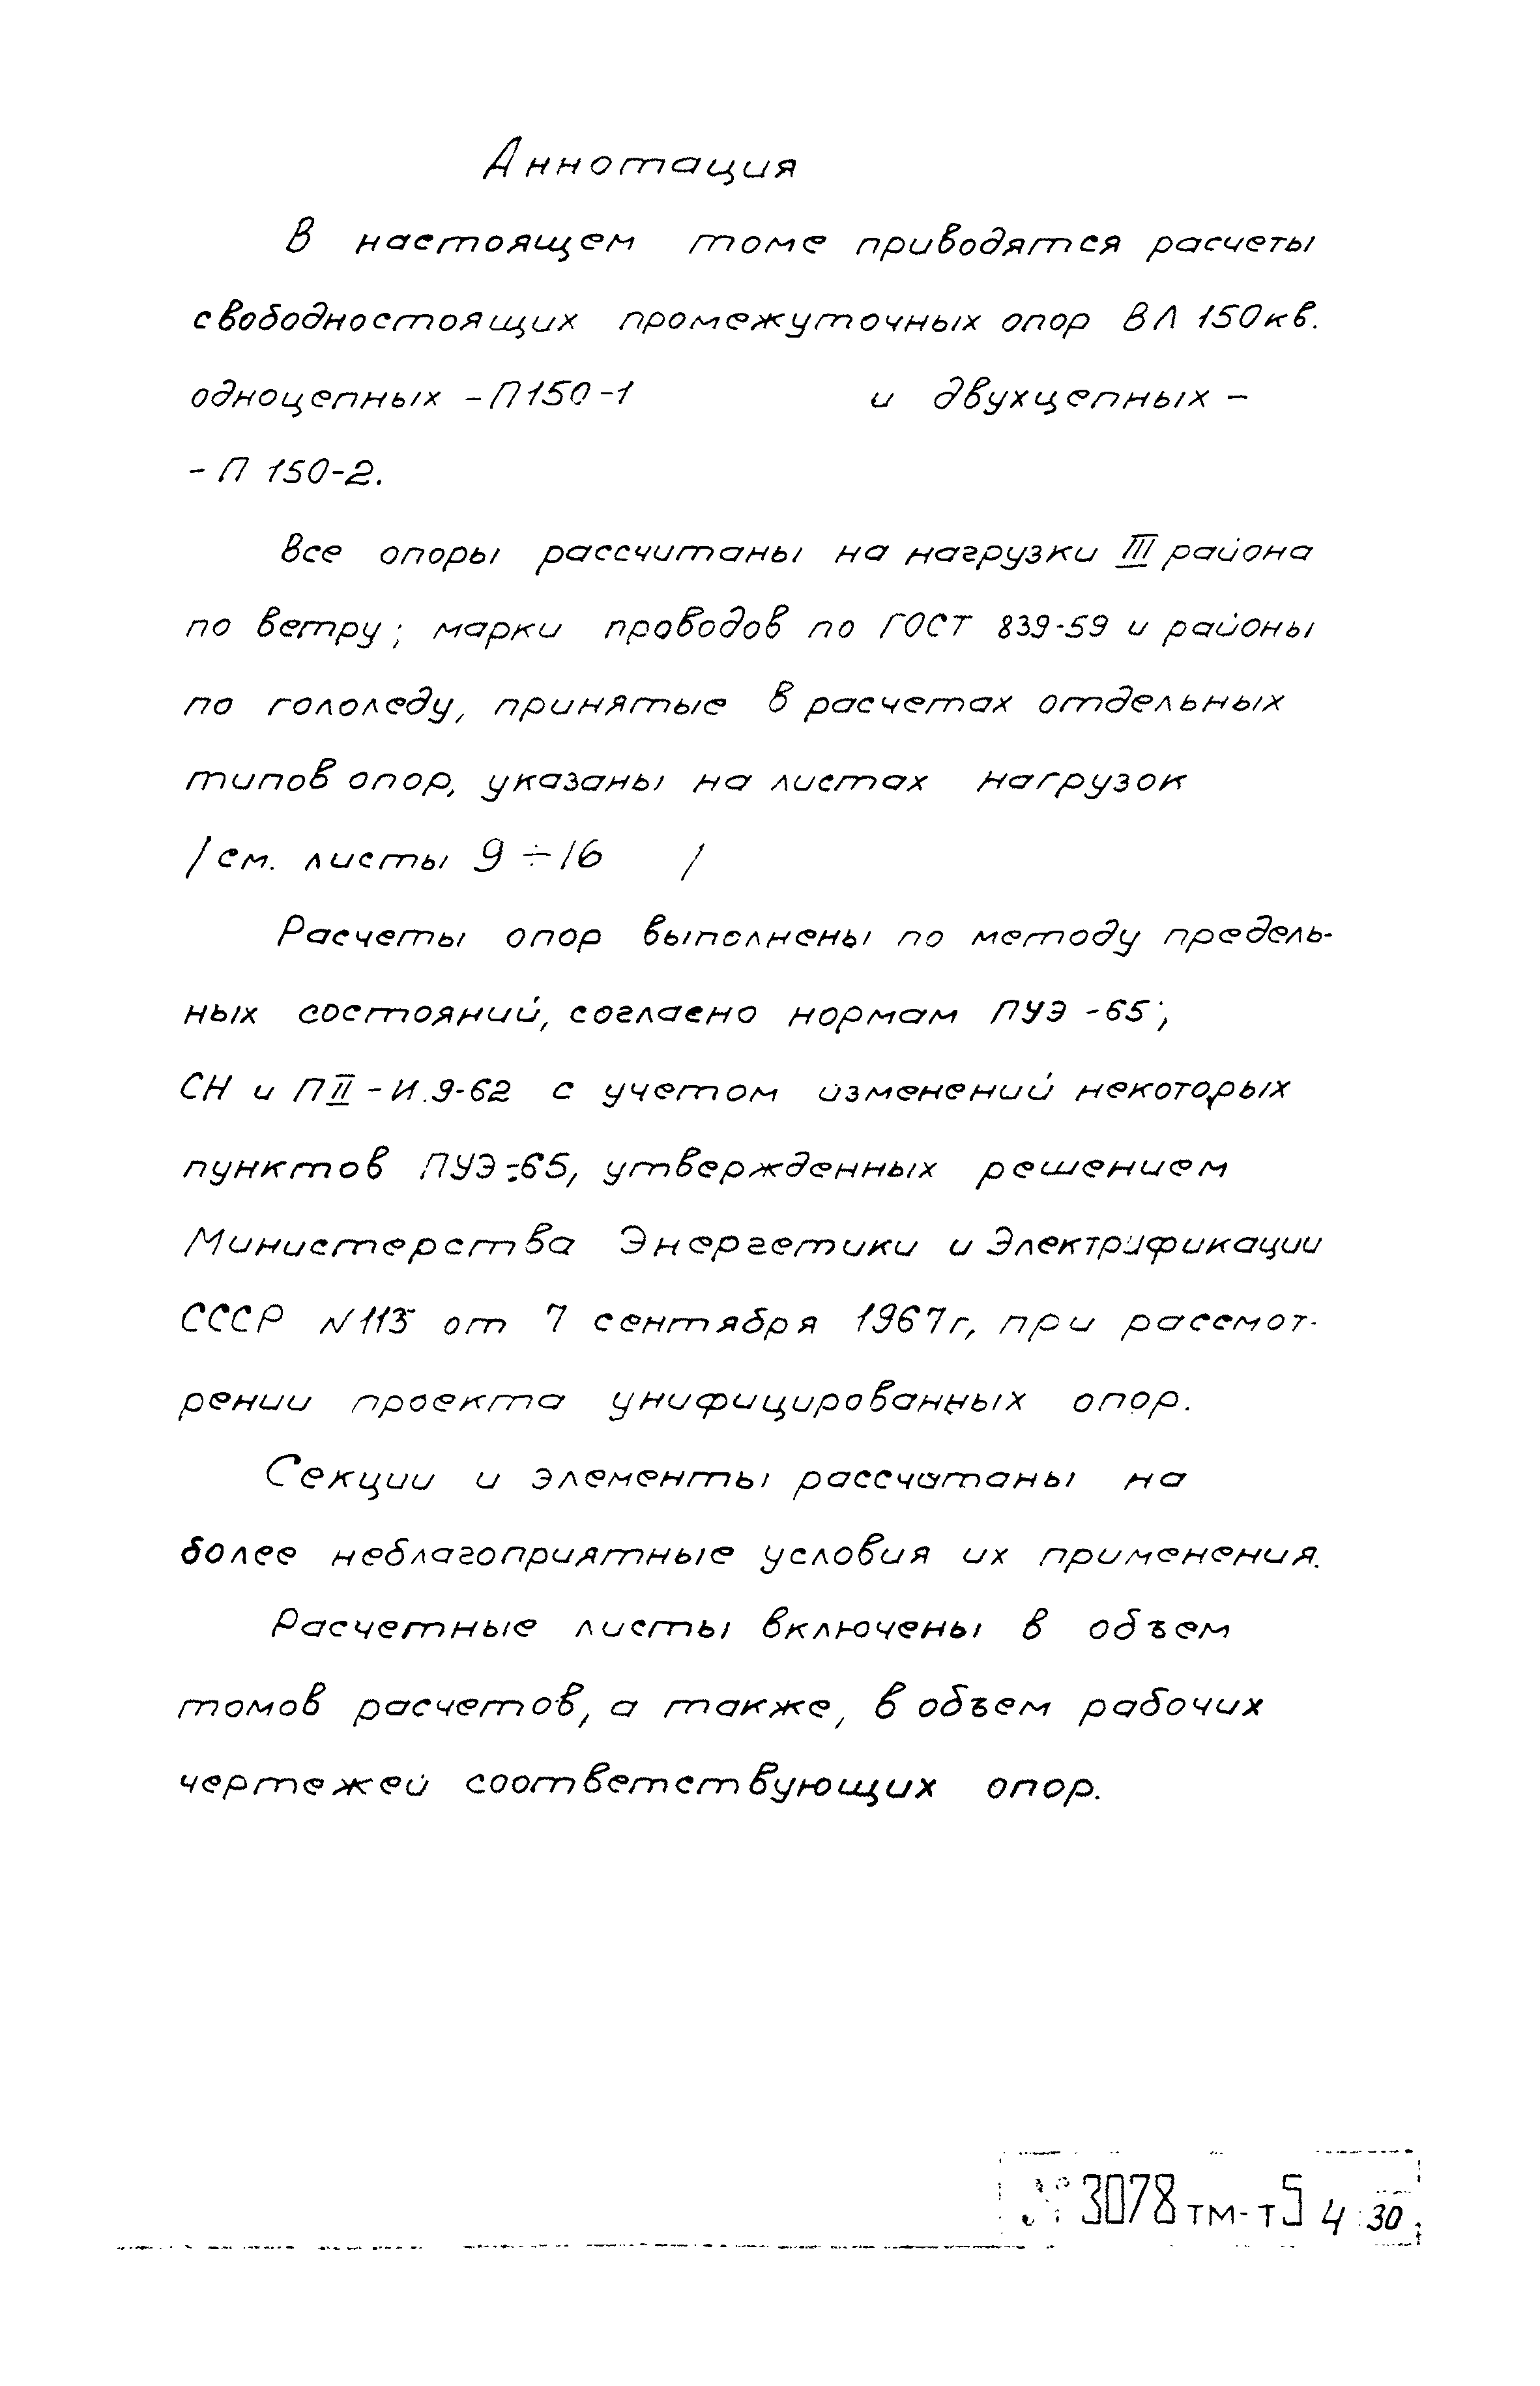 Аннотация
В настоящем томе приводятся расчеты
свободностоящих промежуточных опор ВЛ 150кв.
одноцепных -П150-1 и двухцепных -
- П 150-2.
Все опоры рассчитаны на нагрузки III района
по ветру; марки проводов по ГОСТ 839-59 и районы
по гололеду, принятые в расчетах отдельных
типов опор, указаны на листах нагрузок
/см. листы 9÷16 /
Расчеты опор выполнены по методу предель-
ных состояний, согласно нормам ПУЭ -65;
СН и П II - И.9-62 с учетом изменений некоторых
пунктов ПУЭ-65, утвержденных решением
Министерства Энергетики и Электрификации
СССР N113 от 7 сентября 1967г, при рассмот-
рении проекта унифицированных опор.
Секции и элементы рассчитаны на
более неблагоприятные условия их применения.
Расчетные листы включены в объем
томов расчетов, а также, в объем рабочих
чертежей соответствующих опор.
№ 3078тм-т5 4 30